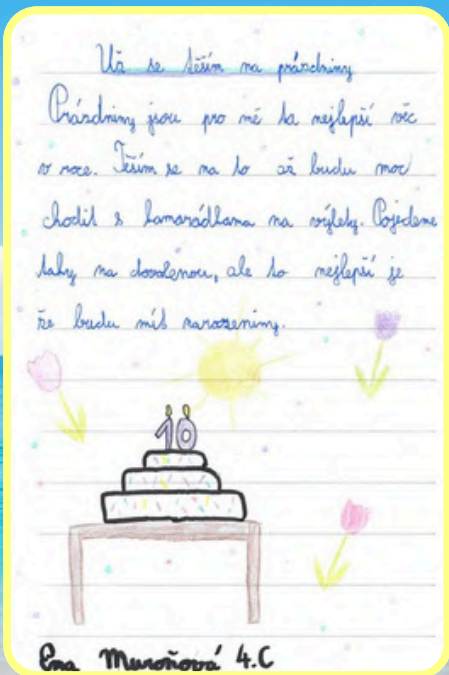 Už se těším na prázdniny
Prázdniny jsou pro mě ta nejlepší věc
v roce. Těším se na to až budu moc
chodit s kamarádkama na výlety. Pojedeme
taky na dovolenou, ale to nejlepší je
že budu mít narozeniny.
10
Ema Muroňová 4.C